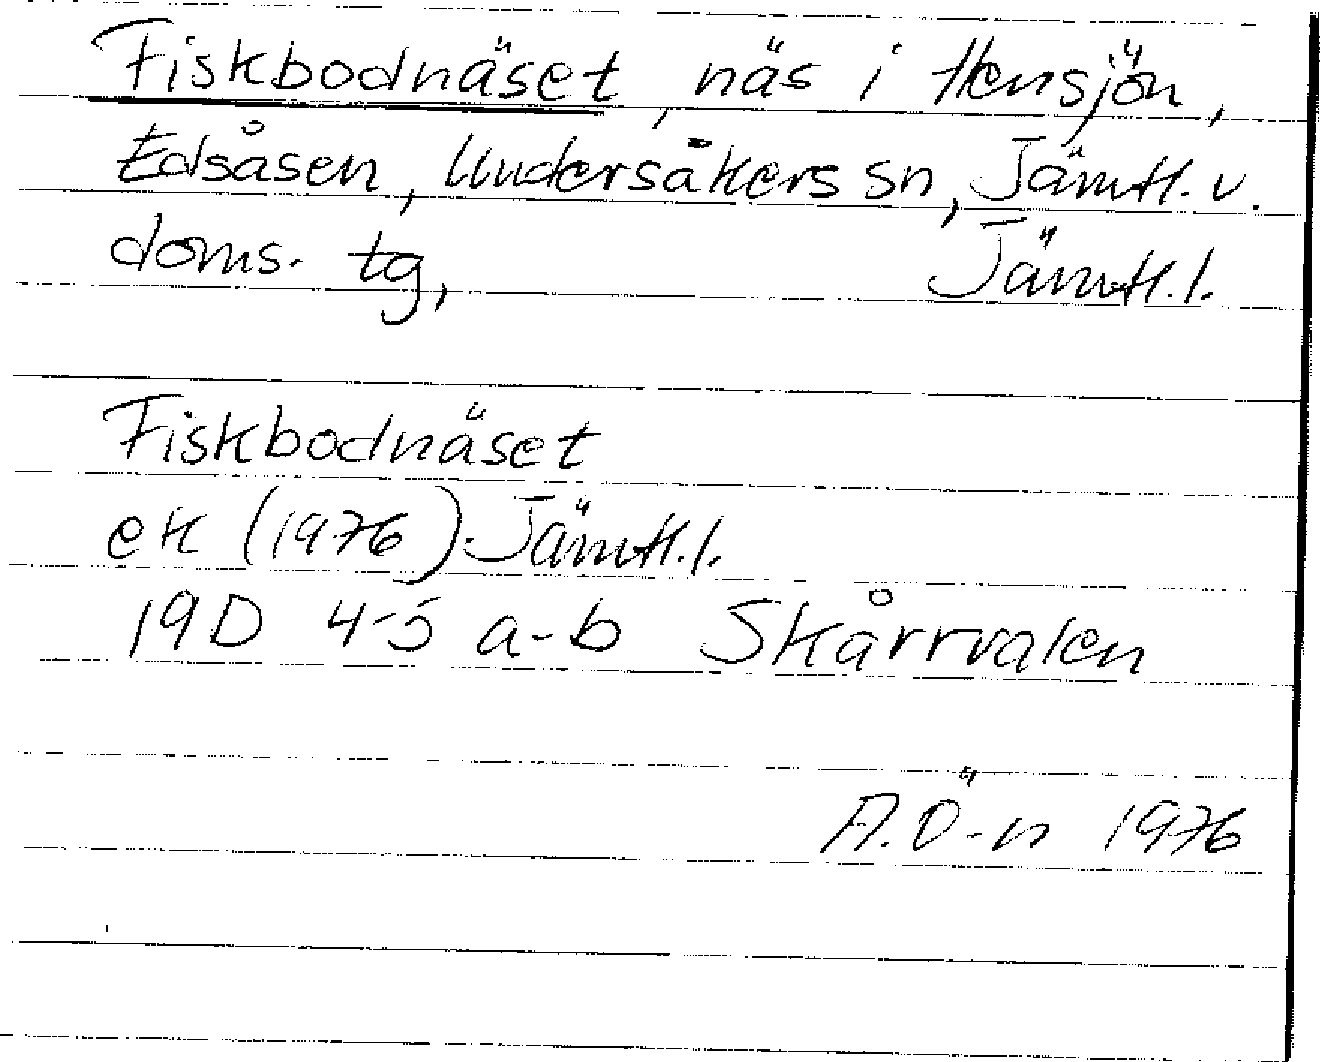 Fiskbodnäset, näs i Hensjön,
Edsåsen, Undersåkers sn, Jämtl. v.
doms. tg, Jämtl.l.
Fiskbodnäset
ek (1976). Jämtl.l.
19D 4-5 a-b Skårrvalen
A.Ö-n 1976